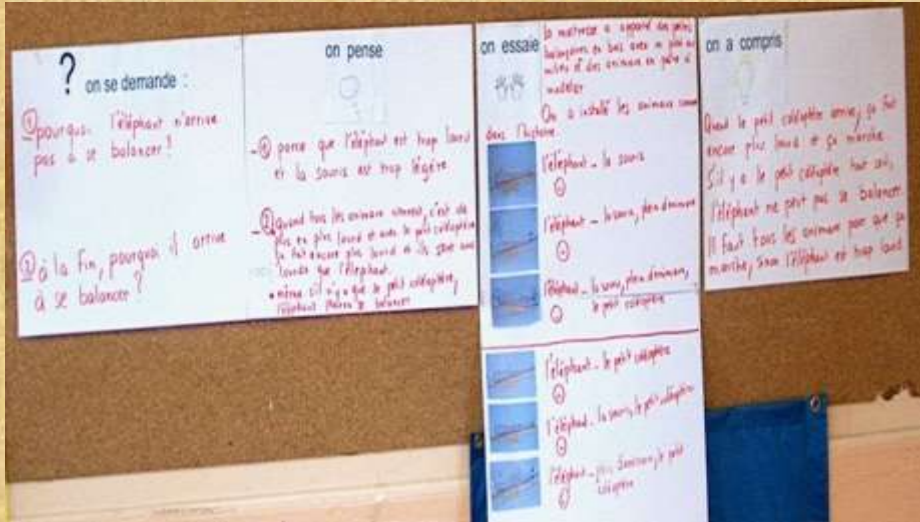 ? on se demande :
① pourquoi l'éléphant n'arrive
pas à se balancer ?
② à la fin, pourquoi il arrive
à se balancer ?
on pense
- ① parce que l'éléphant est trop lourd
et la souris est trop légère.
- ② Quand tous les animaux viennent, c'est de
plus en plus lourd et avec le petit coléoptère
ça fait encore plus lourd et ils sont aussi
lourds que l'éléphant.
• même s'il n'y a que le petit coléoptère,
l'éléphant pourra se balancer
on essaie
la maîtresse a apporté des petites
balançoires en bois avec un plot au
milieu et des animaux en pâte à
modeler
On a installé les animaux comme
dans l'histoire.
l'éléphant - la souris
l'éléphant - la souris, plein d'animaux
l'éléphant - la souris, plein d'animaux,
le petit coléoptère
l'éléphant - le petit coléoptère
l'éléphant - la souris, le petit coléoptère
l'éléphant - le petit
coléoptère
on a compris
Quand le petit coléoptère arrive, ça fait
encore plus lourd et ça marche.
S'il y a le petit coléoptère tout seul,
l'éléphant ne peut pas se balancer.
Il faut tous les animaux pour que ça
marche, sinon l'éléphant est trop lourd